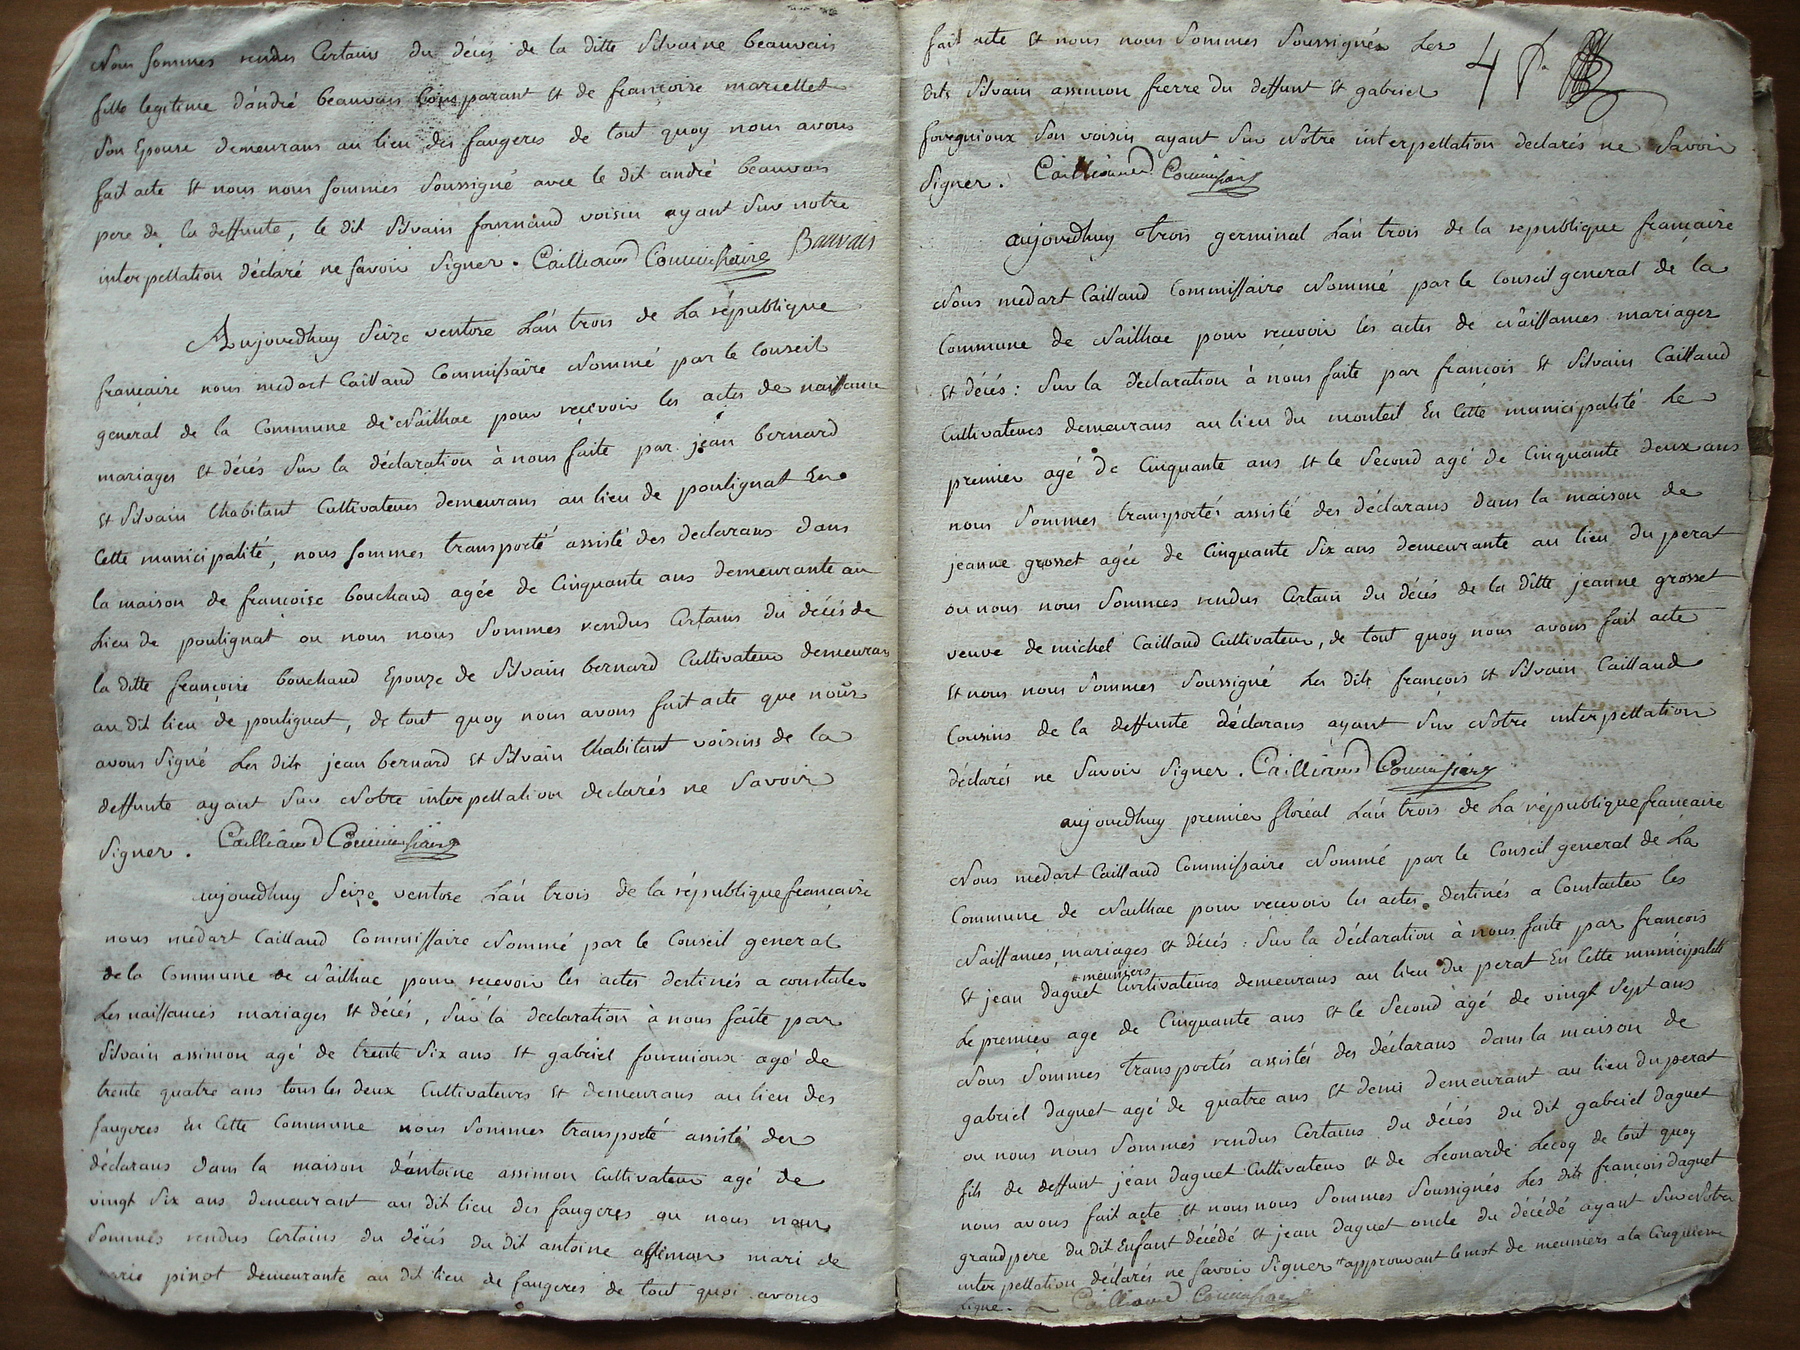 Nous sommes rendus Certains du décès de la ditte Silvaine beauvais
fille legitime d'andré beauvais comparant et de françoise mariellet
son Epouse demeurans au lieu des faugeres de tout quoy nous avons
fait acte et nous nous sommes soussigné avec le dit andré beauvais
pere de la deffunte, le dit Silvain fournaud voisin ayant sur notre
interpellation déclaré ne savoir signer. Cailliaud Commissaire Bauvais
Aujourdhuy seize ventose L'an trois de La république
francaise nous medart Caillaud Commissaire Nommé par le Conseil
general de la Commune de Naillhac pour reçevoir les actes de naissance
mariages et décès sur la déclaration à nous faite par jean bernard
et Silvain lhabitant Cultivateurs demeurans au lieu de poulignat En
Cette municipalité, nous sommes transporté assisté des declarans dans
la maison de françoise bouchaud agée de Cinquante ans demeurante au
Lieu de poulignat ou nous nous sommes rendus Certains du décès de
la ditte françoise bouchaud Epouze de Silvain bernard Cultivateur demeuran
au dit lieu de poulignat, de tout quoy nous avons fait acte que nous
avons signé Les dits jean bernard et Silvain lhabitant voisins de la
deffunte ayant sur Notre interpellation declarés ne savoir
signer. Cailliaud Commissaire
aujourdhuy seize ventose L'an trois de la république francaise
nous médart Caillaud Commissaire Nommé par le Conseil general
de la Commune de Naillhac pour recevoir les actes destinés a constater
Les naissances mariages et décès, sur la declaration à nous faite par
Silvain assimon agé de trente six ans et gabriel fournioux agé de
trente quatre ans tous les deux Cultivateurs et demeurans au lieu des
faugeres En Cette Commune nous sommes transporté assisté des
déclarans dans la maison d'antoine assimon Cultivateur agé de
vingt six ans demeurant au dit lieu des faugeres ou nous nous
sommes rendus Certains du décès du dit antoine assimon mari de
marie pinot demeurante au dit lieu de faugeres de tout quoi avons
fait acte et nous nous sommes soussignés Les
dits Silvain assimon frerre du deffunt et gabriel
4
fourgnioux son voisin ayant sur Notre interpellation declarés ne savoir
signer. Cailliaud Commissaire
aujourdhuy trois germinal L'an trois de la republique françaice
Nous medart Caillaud Commissaire Nommé par le Conseil general de la
Commune de Naillhac pour recevoir les actes de Naissances mariages
et décès: sur la déclaration à nous faite par françois et Silvain Caillaud
Cultivateurs demeurans au lieu du monteil En Cette municipalité Le
premier agé de Cinquante ans et le second agé de Cinquante deux ans
nous sommes transportés assisté des déclarans dans la maison de
jeanne grosset agée de Cinquante six ans demeurante au lieu du perat
ou nous nous sommes rendus Certain du décès de la ditte jeanne grosset
veuve de michel Caillaud Cultivateur, de tout quoy nous avons fait acte
et nous nous sommes soussigné Les dits françois et Silvain Caillaud
Cousins de la deffunte déclarans ayant sur Notre interpellation
déclarés ne savoir signer. Cailliaud Commissaire
aujourdhuy premier floréal L'an trois de La république francaice
Nous medart Caillaud Commissaire Nommé par le Conseil general de La
Commune de Naillhac pour recevoir les actes destinés a Constater les
Naissances mariages et décès: sur la déclaration à nous faite par françois
meuniers
et jean daguet Cultivateurs demeurans au lieu du perat En Cette municipalité
Le premier agé de Cinquante ans et le second agé de vingt sept ans
Nous sommes transportés assistés des déclarans dans la maison de
gabriel daguet agé de quatre ans et demi demeurant au lieu du perat
ou nous nous sommes rendus Certains du décès du dit gabriel daguet
fils de deffunt jean daguet Cultivateur et de Leonarde Lecoq de tout quoy
nous avons fait acte et nous nous sommes soussignés Les dits françois daguet
grand pere du dit Enfant décédé et jean daguet oncle du décédé ayant sur Notre
interpellation déclarés ne savoir signer approuvant le mot de meuniers a la Cinquieme
Ligne. Cailliaud Commissaire